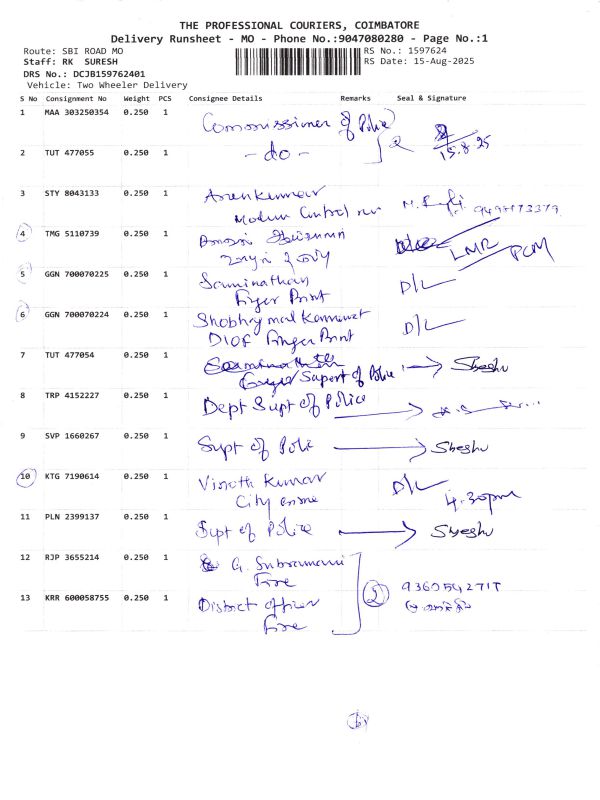 THE PROFESSIONAL COURIERS, COIMBATORE
Delivery Runsheet - MO - Phone No.:9047080280 - Page No.:1
Route: SBI ROAD MO
RS No.: 1597624
Staff: RK SURESH
RS Date: 15-Aug-2025
DRS No.: DCJB159762401
Vehicle: Two Wheeler Delivery
S No Consignment No Weight PCS Consignee Details Remarks Seal & Signature
1 MAA 303250354 0.250 1 Commissioner of Police
2 TUT 477055 0.250 1 - do - 2 15.8.25
3 STY 8043133 0.250 1 Arunkumar
4 TMG 5110739 0.250 1 LMR PCM
5 GGN 700070225 0.250 1 Saminathan D/L
Finger Print
6 GGN 700070224 0.250 1 D/L
Finger Print
7 TUT 477054 0.250 1 Supert of Police Sheshu
8 TRP 4152227 0.250 1 Dept Supt of Police
9 SVP 1660267 0.250 1 Supt of Polic Sheshu
10 KTG 7190614 0.250 1 Vinoth Kumar D/L
City crime 4.30pm
11 PLN 2399137 0.250 1 Supt of Police Sheshu
12 RJP 3655214 0.250 1 G. Subramani
Fire
2
13 KRR 600058755 0.250 1 District officer
Fire